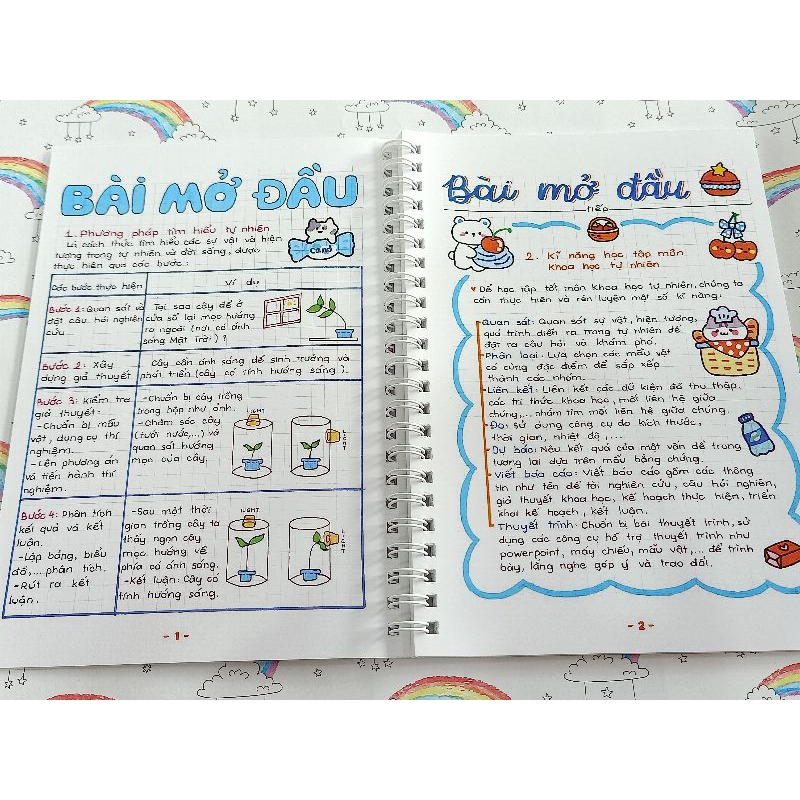 BÀI MỞ ĐẦU
1. Phương pháp tìm hiểu tự nhiên
Là cách thức tìm hiểu các sự vật và hiện
tượng trong tự nhiên và đời sống, được
thực hiện qua các bước:
Cand
Các bước thực hiện
Ví dụ
Bước 1: Quan sát và
đặt câu hỏi nghiên
cứu
Tại sao cây để ở
cửa sổ lại mọc hướng
ra ngoài (nơi có ánh
sáng Mặt Trời)?
Bước 2: Xây
dựng giả thuyết
Cây cần ánh sáng để sinh trưởng và
phát triển (cây có tính hướng sáng).
Bước 3: Kiểm tra
giả thuyết:
-Chuẩn bị mẫu
vật, dụng cụ thí
nghiệm.
-Lên phương án
và tiến hành thí
nghiệm.
-Chuẩn bị cây trồng
trong hộp như ảnh.
-Chăm sóc cây
(tưới nước,...) và
quan sát hướng
mọc của cây.
LIGHT
LIGHT
Bước 4: Phân tích
kết quả và kết
luận.
-Lập bảng, biểu
đồ,... phân tích.
-Rút ra kết
luận.
-Sau một thời
gian trồng cây ta
thấy ngọn cây
mọc hướng về
phía có ánh sáng.
-Kết luận: Cây có
tính hướng sáng.
LIGHT
LIGHT
-1-
Bài mở đầu
tiếp
2. Kĩ năng học tập môn
khoa học tự nhiên
Để học tập tốt môn khoa học tự nhiên, chúng ta
cần thực hiện và rèn luyện một số kĩ năng.
Quan sát: Quan sát sự vật, hiện tượng,
quá trình diễn ra trong tự nhiên để
đặt ra câu hỏi và khám phá.
Phân loại: Lựa chọn các mẫu vật
có cùng đặc điểm để sắp xếp
thành các nhóm.
Liên kết: Liên kết các dữ kiện đã thu thập,
các tri thức khoa học, mối liên hệ giữa
chúng,... nhằm tìm mối liên hệ giữa chúng.
Đo: sử dụng công cụ đo kích thước,
thời gian, nhiệt độ,...
Dự báo: Nêu kết quả của một vấn đề trong
tương lai dựa trên mẫu bằng chứng.
Viết báo cáo: Viết báo cáo gồm các thông
tin như tên đề tài nghiên cứu, câu hỏi nghiên,
giả thuyết khoa học, kế hoạch thực hiện, triển
khai kế hoạch, kết luận.
Thuyết trình: Chuẩn bị bài thuyết trình, sử
dụng các công cụ hỗ trợ thuyết trình như
powerpoint, máy chiếu, mẫu vật,... để trình
bày, lắng nghe góp ý và trao đổi.
-2-